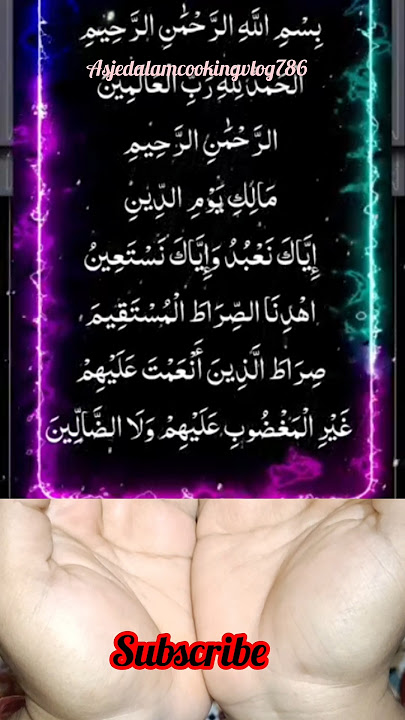 بِسْمِ اللَّهِ الرَّحْمَٰنِ الرَّحِيمِ
Asjedalamcookingvlog786
الْحَمْدُ لِلَّهِ رَبِّ الْعَالَمِينَ
الرَّحْمَٰنِ الرَّحِيمِ
مَالِكِ يَوْمِ الدِّينِ
إِيَّاكَ نَعْبُدُ وَإِيَّاكَ نَسْتَعِينُ
اهْدِنَا الصِّرَاطَ الْمُسْتَقِيمَ
صِرَاطَ الَّذِينَ أَنْعَمْتَ عَلَيْهِمْ
غَيْرِ الْمَغْضُوبِ عَلَيْهِمْ وَلَا الضَّالِّينَ
Subscribe